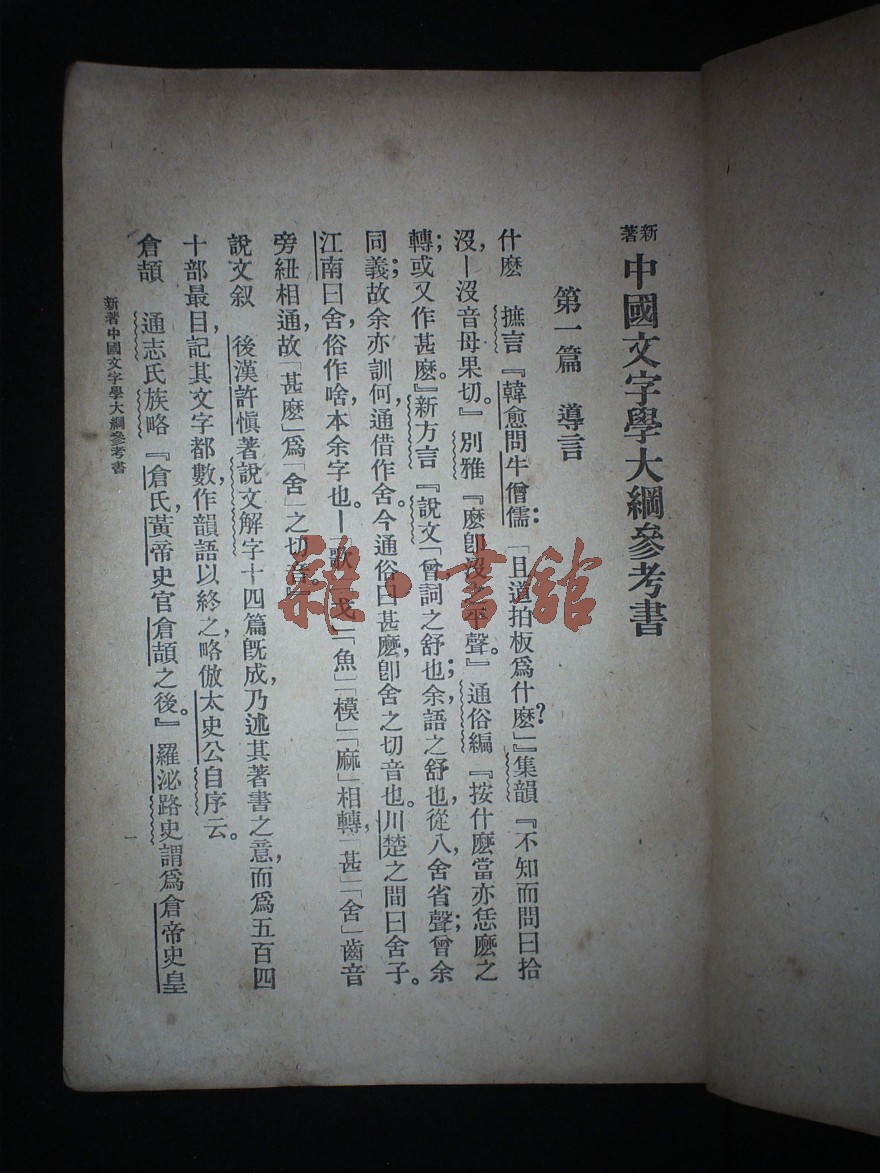 新著 中國文字學大綱參考書
第一篇 導言
什麽 摭言『韓愈問牛僧儒：「且道拍板爲什麽？」』集韻『不知而問曰拾
沒，—沒音母果切。』別雅『麽卽沒之平聲。』通俗編『按什麽當亦恁麽之
轉；或又作甚麽。』新方言『說文「曾詞之舒也；余，語之舒也，從八舍省聲；曾余
同義；故余亦訓何，通借作舍。今通俗曰甚麽，卽舍之切音也。川楚之間曰舍子。
江南曰舍，俗作啥，本余字也。—「歌」「戈」「魚」「模」「麻」相轉，「甚」「舍」齒音
旁紐相通，故「甚麽」爲「舍」之切音。』
說文叙 後漢許愼著說文解字十四篇旣成，乃述其著書之意，而爲五百四
十部最目，記其文字都數，作韻語以終之，略倣太史公自序云。
倉頡 通志氏族略『倉氏，黃帝史官倉頡之後。』羅泌路史謂爲倉帝史皇
新著中國文字學大綱參考書
一
雜·書舘